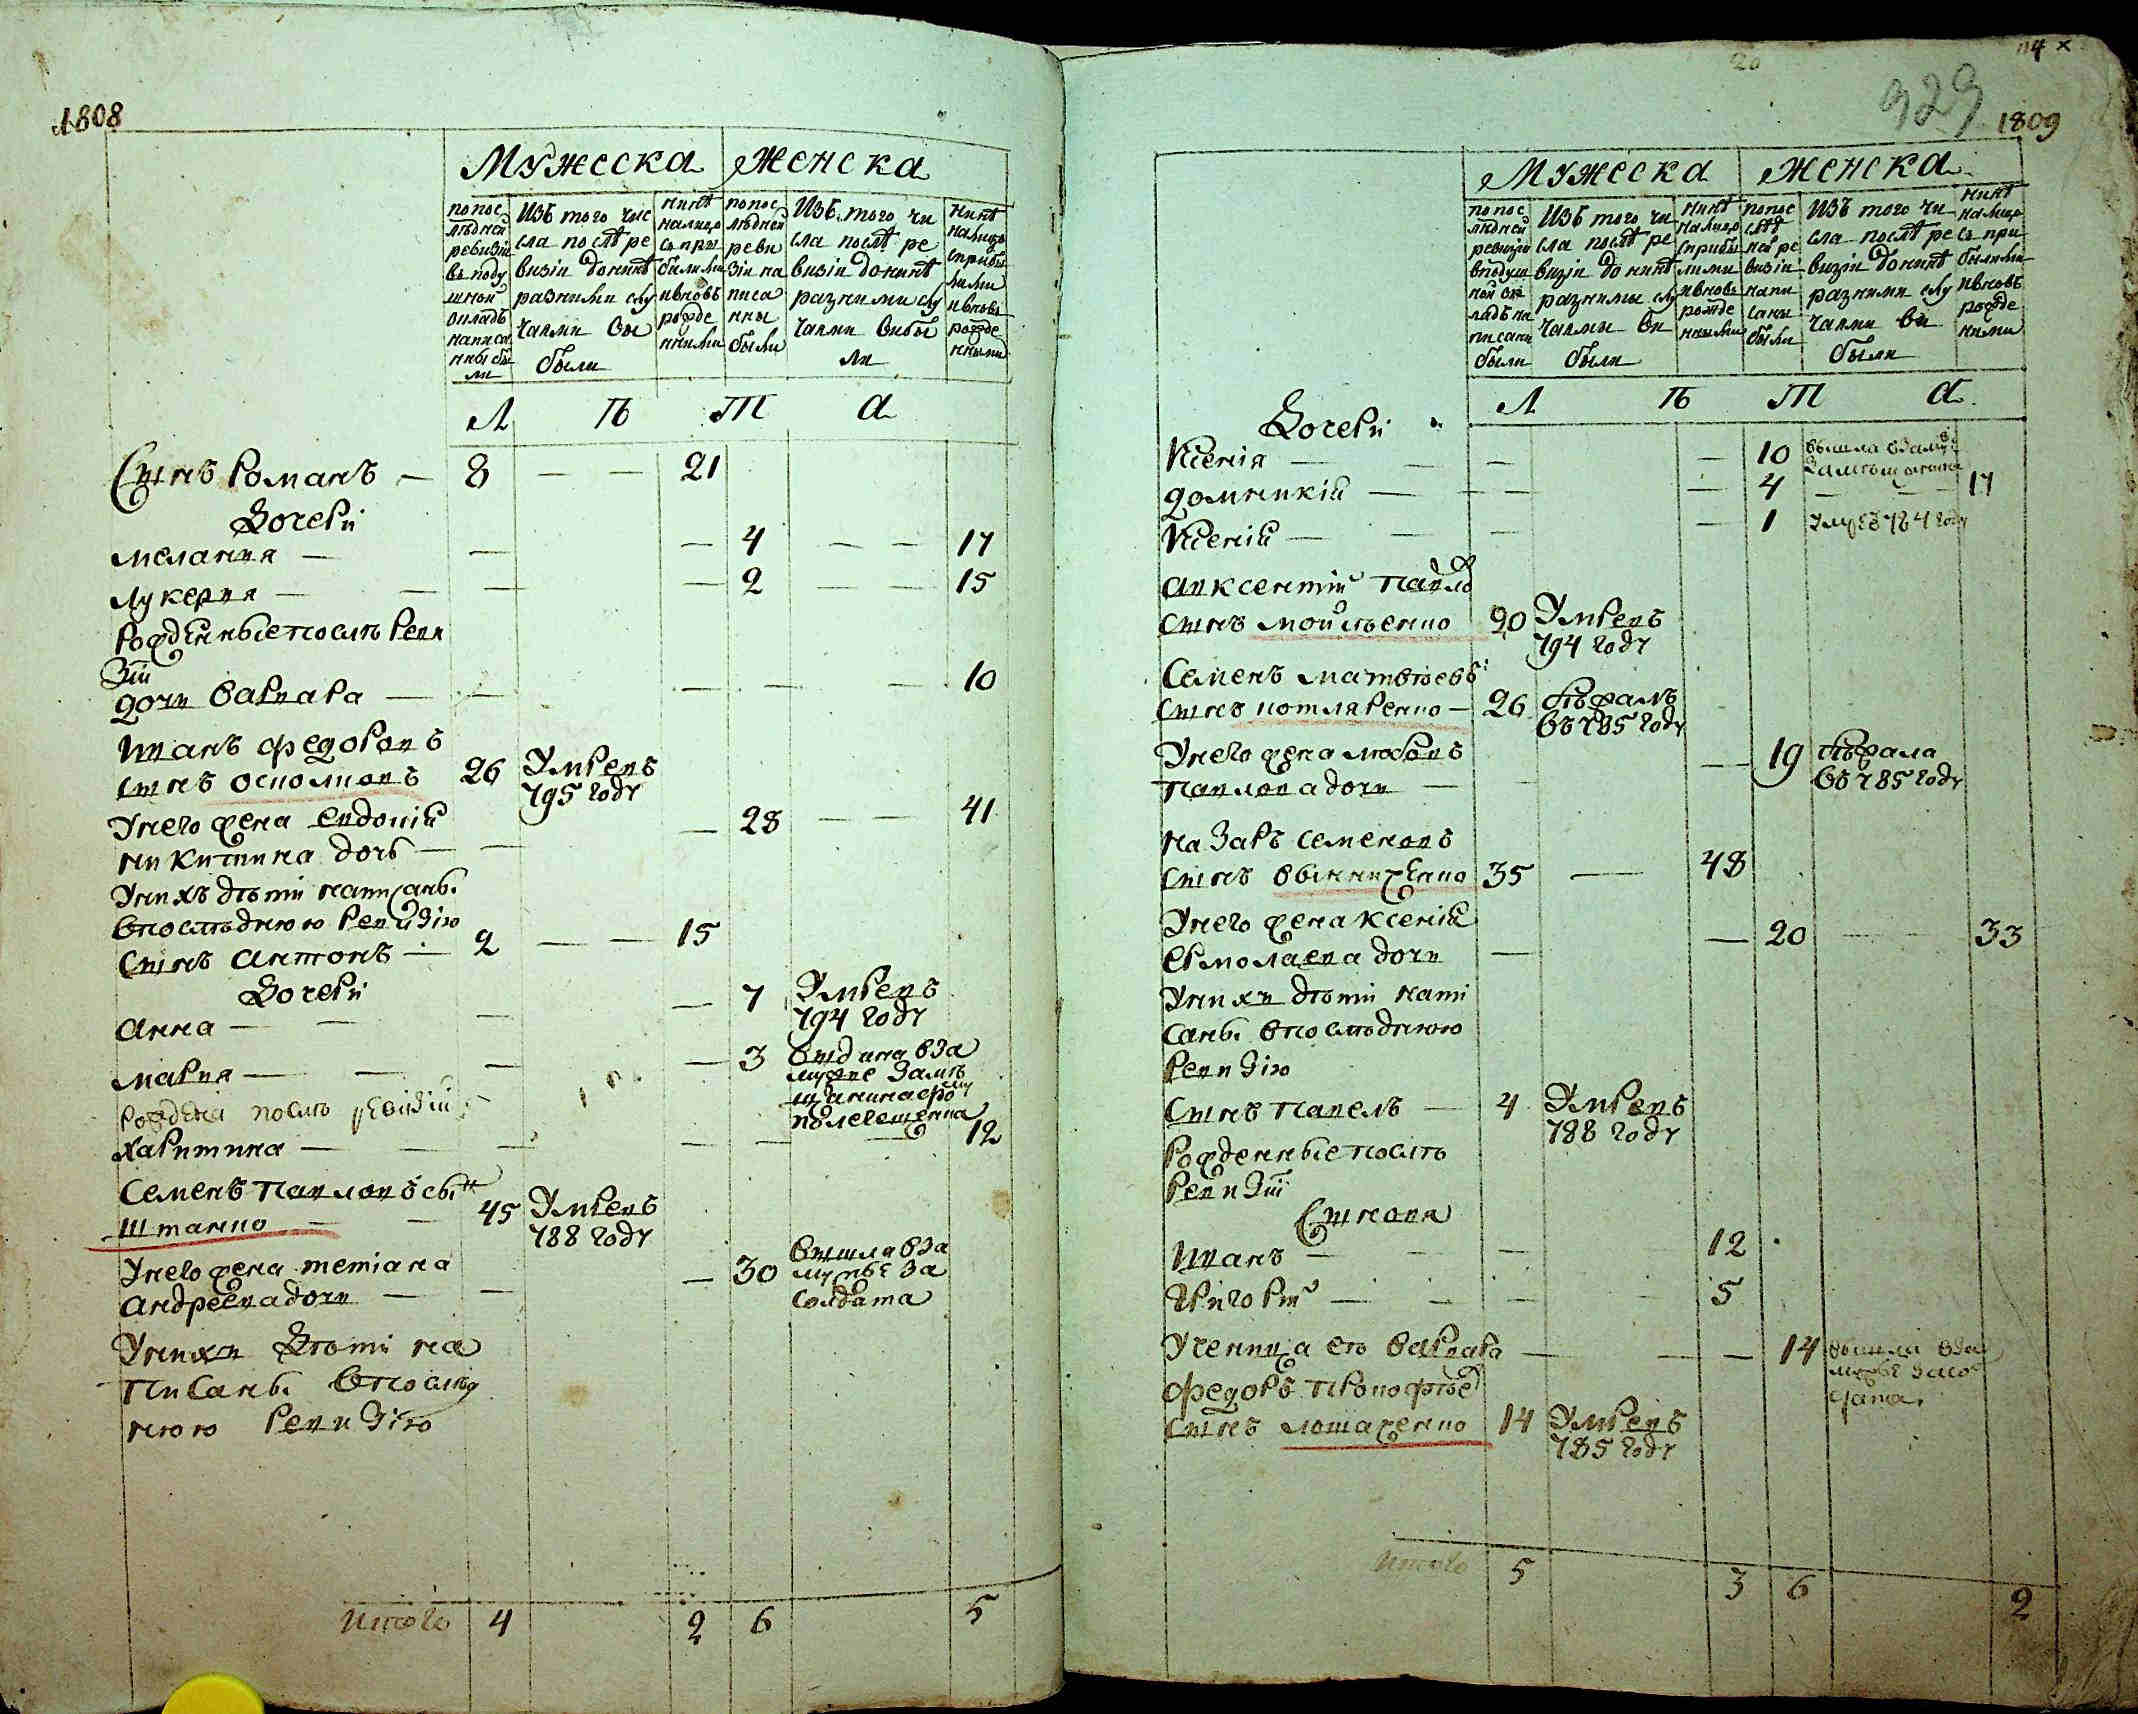 1808
Мужеска Женска
по пос
лѣдней
ревизіи
въ поду
шной
окладъ
написа
нны бы
ли
Изъ того чис
сла послѣ ре
визіи до нинѣ
разними слу
чаями вы
были
нинѣ
налицо
съ при
былими
ивновь
рожде
нними
по пос
лѣдней
реви
зіи на
писа
нны
были
Изъ того чи
сла послѣ ре
визіи до нинѣ
разними слу
чаями выбы
ли
нинѣ
налицо
сприбы
лими
ивновь
рожде
нними
Л Ѣ Т А
Сынъ Романъ — 8 — — 21
Дочери
Мелания — — — 4 — — 17
Лукерия — — — — 2 — — 15
Рожденные послѣ Реви
зіи
дочи Варвара — — — — — 10
Иванъ Федоровъ
сынъ Осмолновъ 26 Умревъ
795 году
Унего жена Евдокіи
Никитина дочь — — — 28 — — 41
Унихъ дѣти написаны
впослѣднюю Ревизію
Сынъ Антонъ — 2 — — 15
Дочери
Анна — — — — 7 Умревъ
794 году
Мария — — — — 3 Выдана вза
мужие замѣ
щанина
Рождена послѣ ревизіи —
Харитина — — — — — — 12
Семенъ Павловъ сын
Штанко — — 45 Умревъ
788 году
Унего жена Тетіана
Андреева дочи — — — 30 Вышла вза
мужье за
солдата
Унихъ Дѣти на
писаны впослѣд
нюю Ревизію
Итого 4 2 6 5
114 х
20
929
1809
Мужеска Женска
по пос
лѣдней
ревизіи
вподуш
ной ок
ладъ на
писани
были
Изъ того чи
сла послѣ ре
визіи до нинѣ
разнимы слу
чаями вы
были
нинѣ
налицо
сприбы
лими
ивновь
рожде
нними
по пос
лѣд
ней ре
визіи
напи
саны
были
Изъ того чи
сла послѣ ре
визіи до нинѣ
разними слу
чаями вы
были
нинѣ
налицо
съ при
былими
ивновь
рожде
ними
Л Ѣ Т А
Дочери
Ксенія — — — — 10 вышла взаму
замѣщанина
Домникіи — — — — 4 — — 17
Ксеніи — — — — 1 Умре 784 году
Авксентіи Павло
сынъ Мойсѣенко 20 Умревъ
794 году
Семенъ Матвѣевъ
сынъ Котляренко — 26 бѣжалъ
въ 785 году
Унего жена Любовъ
Павлова дочи — — — 19 бѣжала
въ 785 году
Назаръ Семеновъ
сынъ Винниченко 35 — 48
Унего жена Ксеніи
Ермолаева дочи — — 20 — — 33
Унихъ дѣти напи
саны впослѣднюю
Ревизію
Сынъ Павелъ — 4 Умревъ
788 году
Рожденные послѣ
Ревизіи
Сынови
Иванъ — — — 12
Григорій — — — — 5
Ученица его Варвара — — — 14 вышла вза
мужье
Федоръ Прокофѣе
сынъ Моташенко 14 Умревъ
785 году
Итого 5 3 6 2